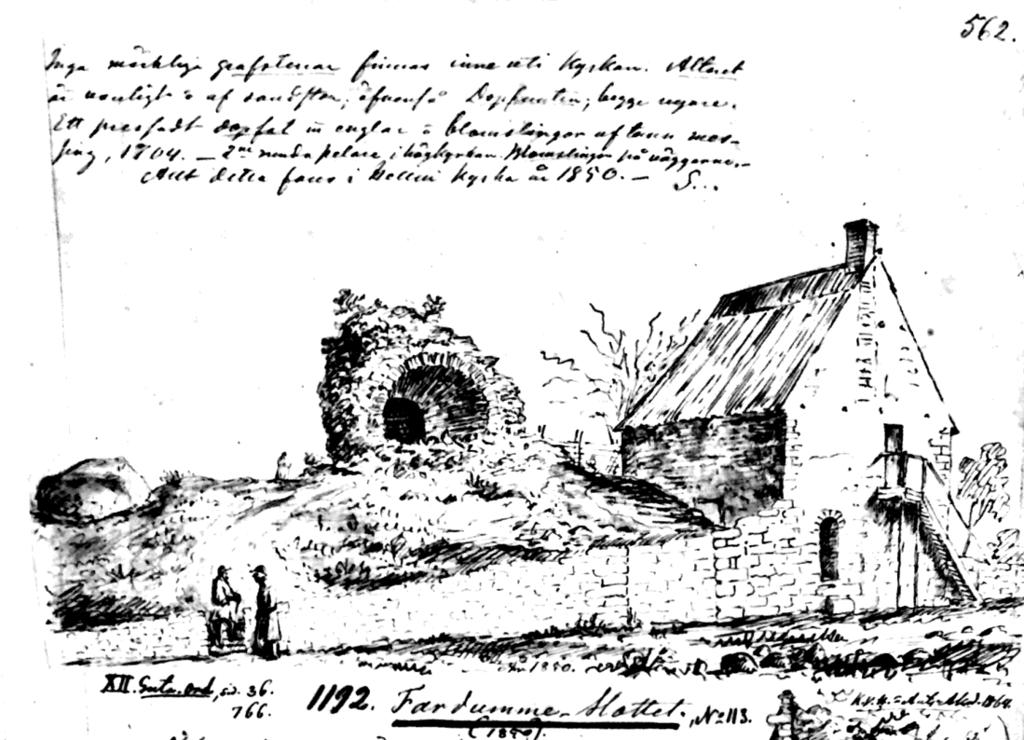 562.
Inga märkliga grafstenar finnas inne uti Kyrkan. Altaret
är vanligt af sandsten, äfvenså Dopfunten, begge nyare.
Ett pressadt dopfat m englar o blomslingor af tunn mes-
sing, 1704. — 2ne runda pelare i högkyrkan. Blomslingor på väggarne. —
Allt detta fans i Kyrka år 1850. — S...
1850.
XII. Guta. Ord, sid. 36.
766.
1192. Fardumme-Slottet., No 113.
(1850).
1864.